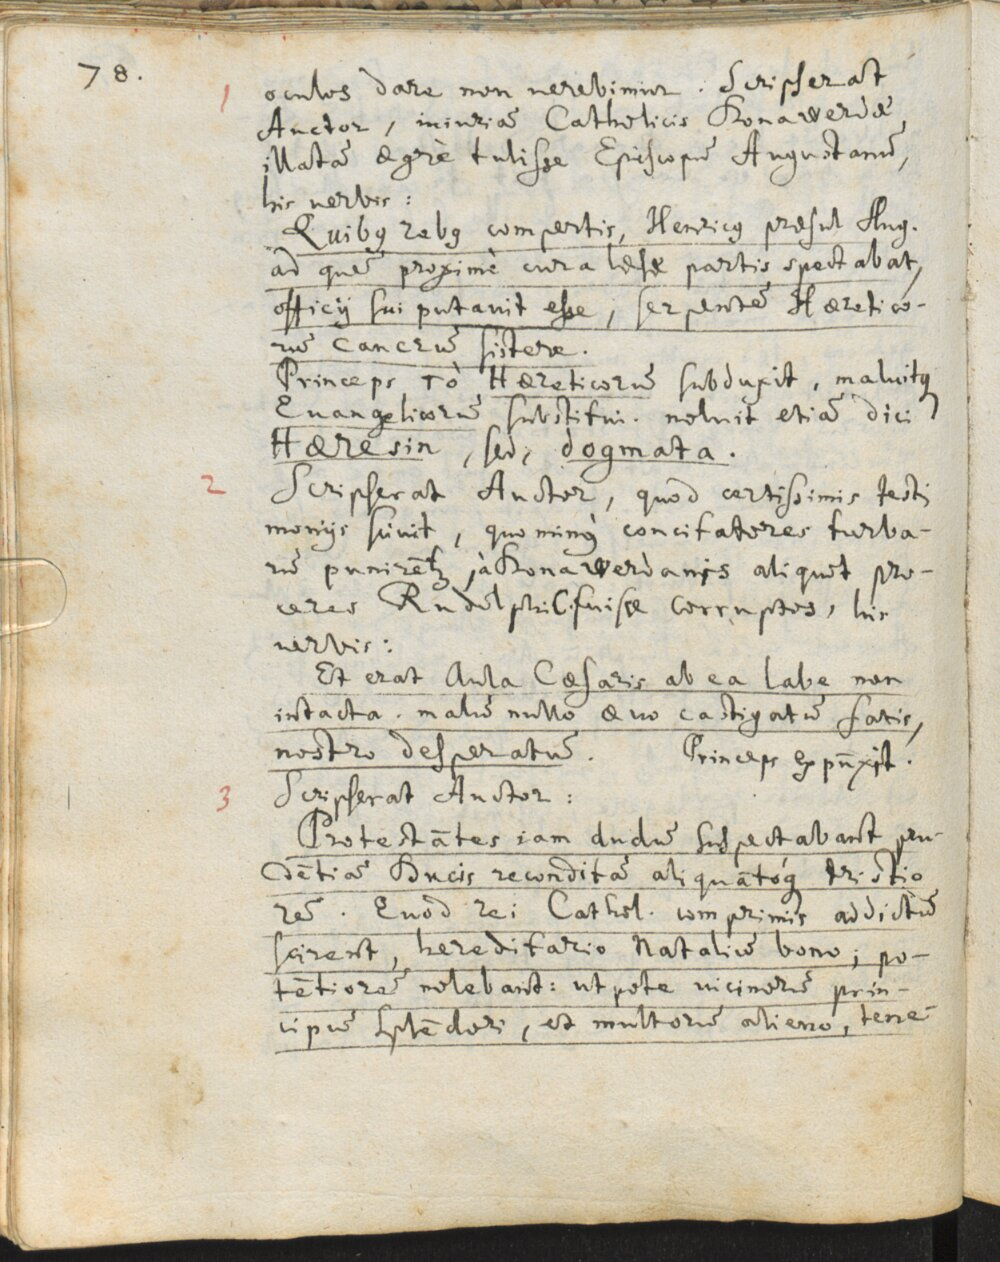 78.
1 oculos dare non verebimur. Scripserat
Auctor, iniuriā Catholicis Donawerdæ,
illatā ægrè tulisse Episcopū Augustanū,
his verbis:
Quibꝯ rebꝯ compertis, Henricꝯ præsul Aug.
ad quē proximè cura læsæ partis spectabat,
officij sui putavit esse, serpentē Hæretico-
rū Cancrū sistere.
Princeps τὸ Hæreticorū subduxit, maluitq
Euangelicorū substitui. noluit etiā dici
Hæresin, sed, dogmata.
2 Scripserat Auctor, quod certissimis testi
monijs sciuit, quo minꝯ concitatores turba-
rū punirēt, à Donawerdanis aliquot pro-
ceres Rudolphi C. fuisse corruptos, his
verbis:
Et erat Aula Cæsaris ab ea labe non
intacta. malū nullo ævo castigatū satis,
nostro desperatū. Princeps expūxit.
3 Scripserat Auctor:
Protestātes iam dudū suspectabant pru
dētiā Ducis reconditā aliquātoq tristio
rē. Quod rei Cathol. comprimis addictū
scirent, hereditario Natalium bono; po-
tētiorē nolebant: utpote vicinorū prin-
cipū splēdori, et multorū alieno, terrę